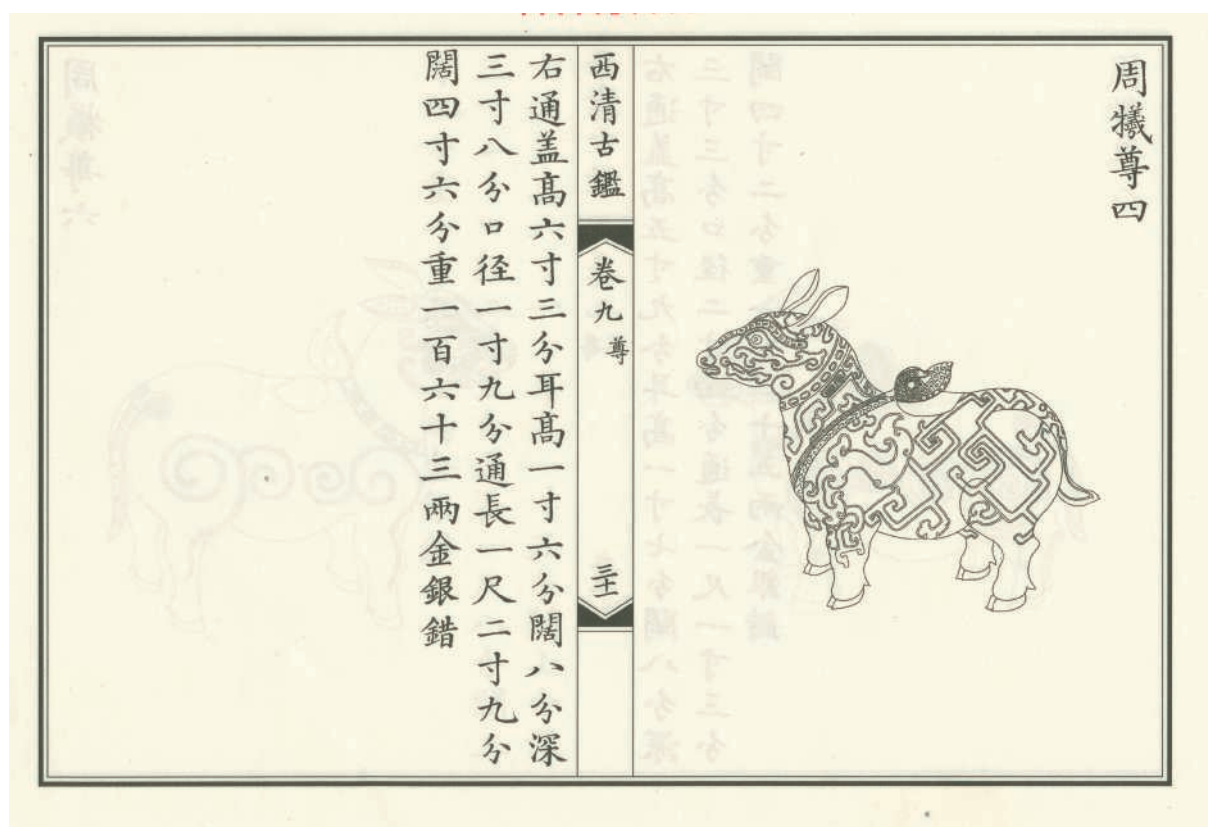 周犧尊四
西清古鑑
卷九 尊
三十
右通盖高六寸三分耳高一寸六分闊八分深
三寸八分口径一寸九分通長一尺二寸九分
闊四寸六分重一百六十三兩金銀錯